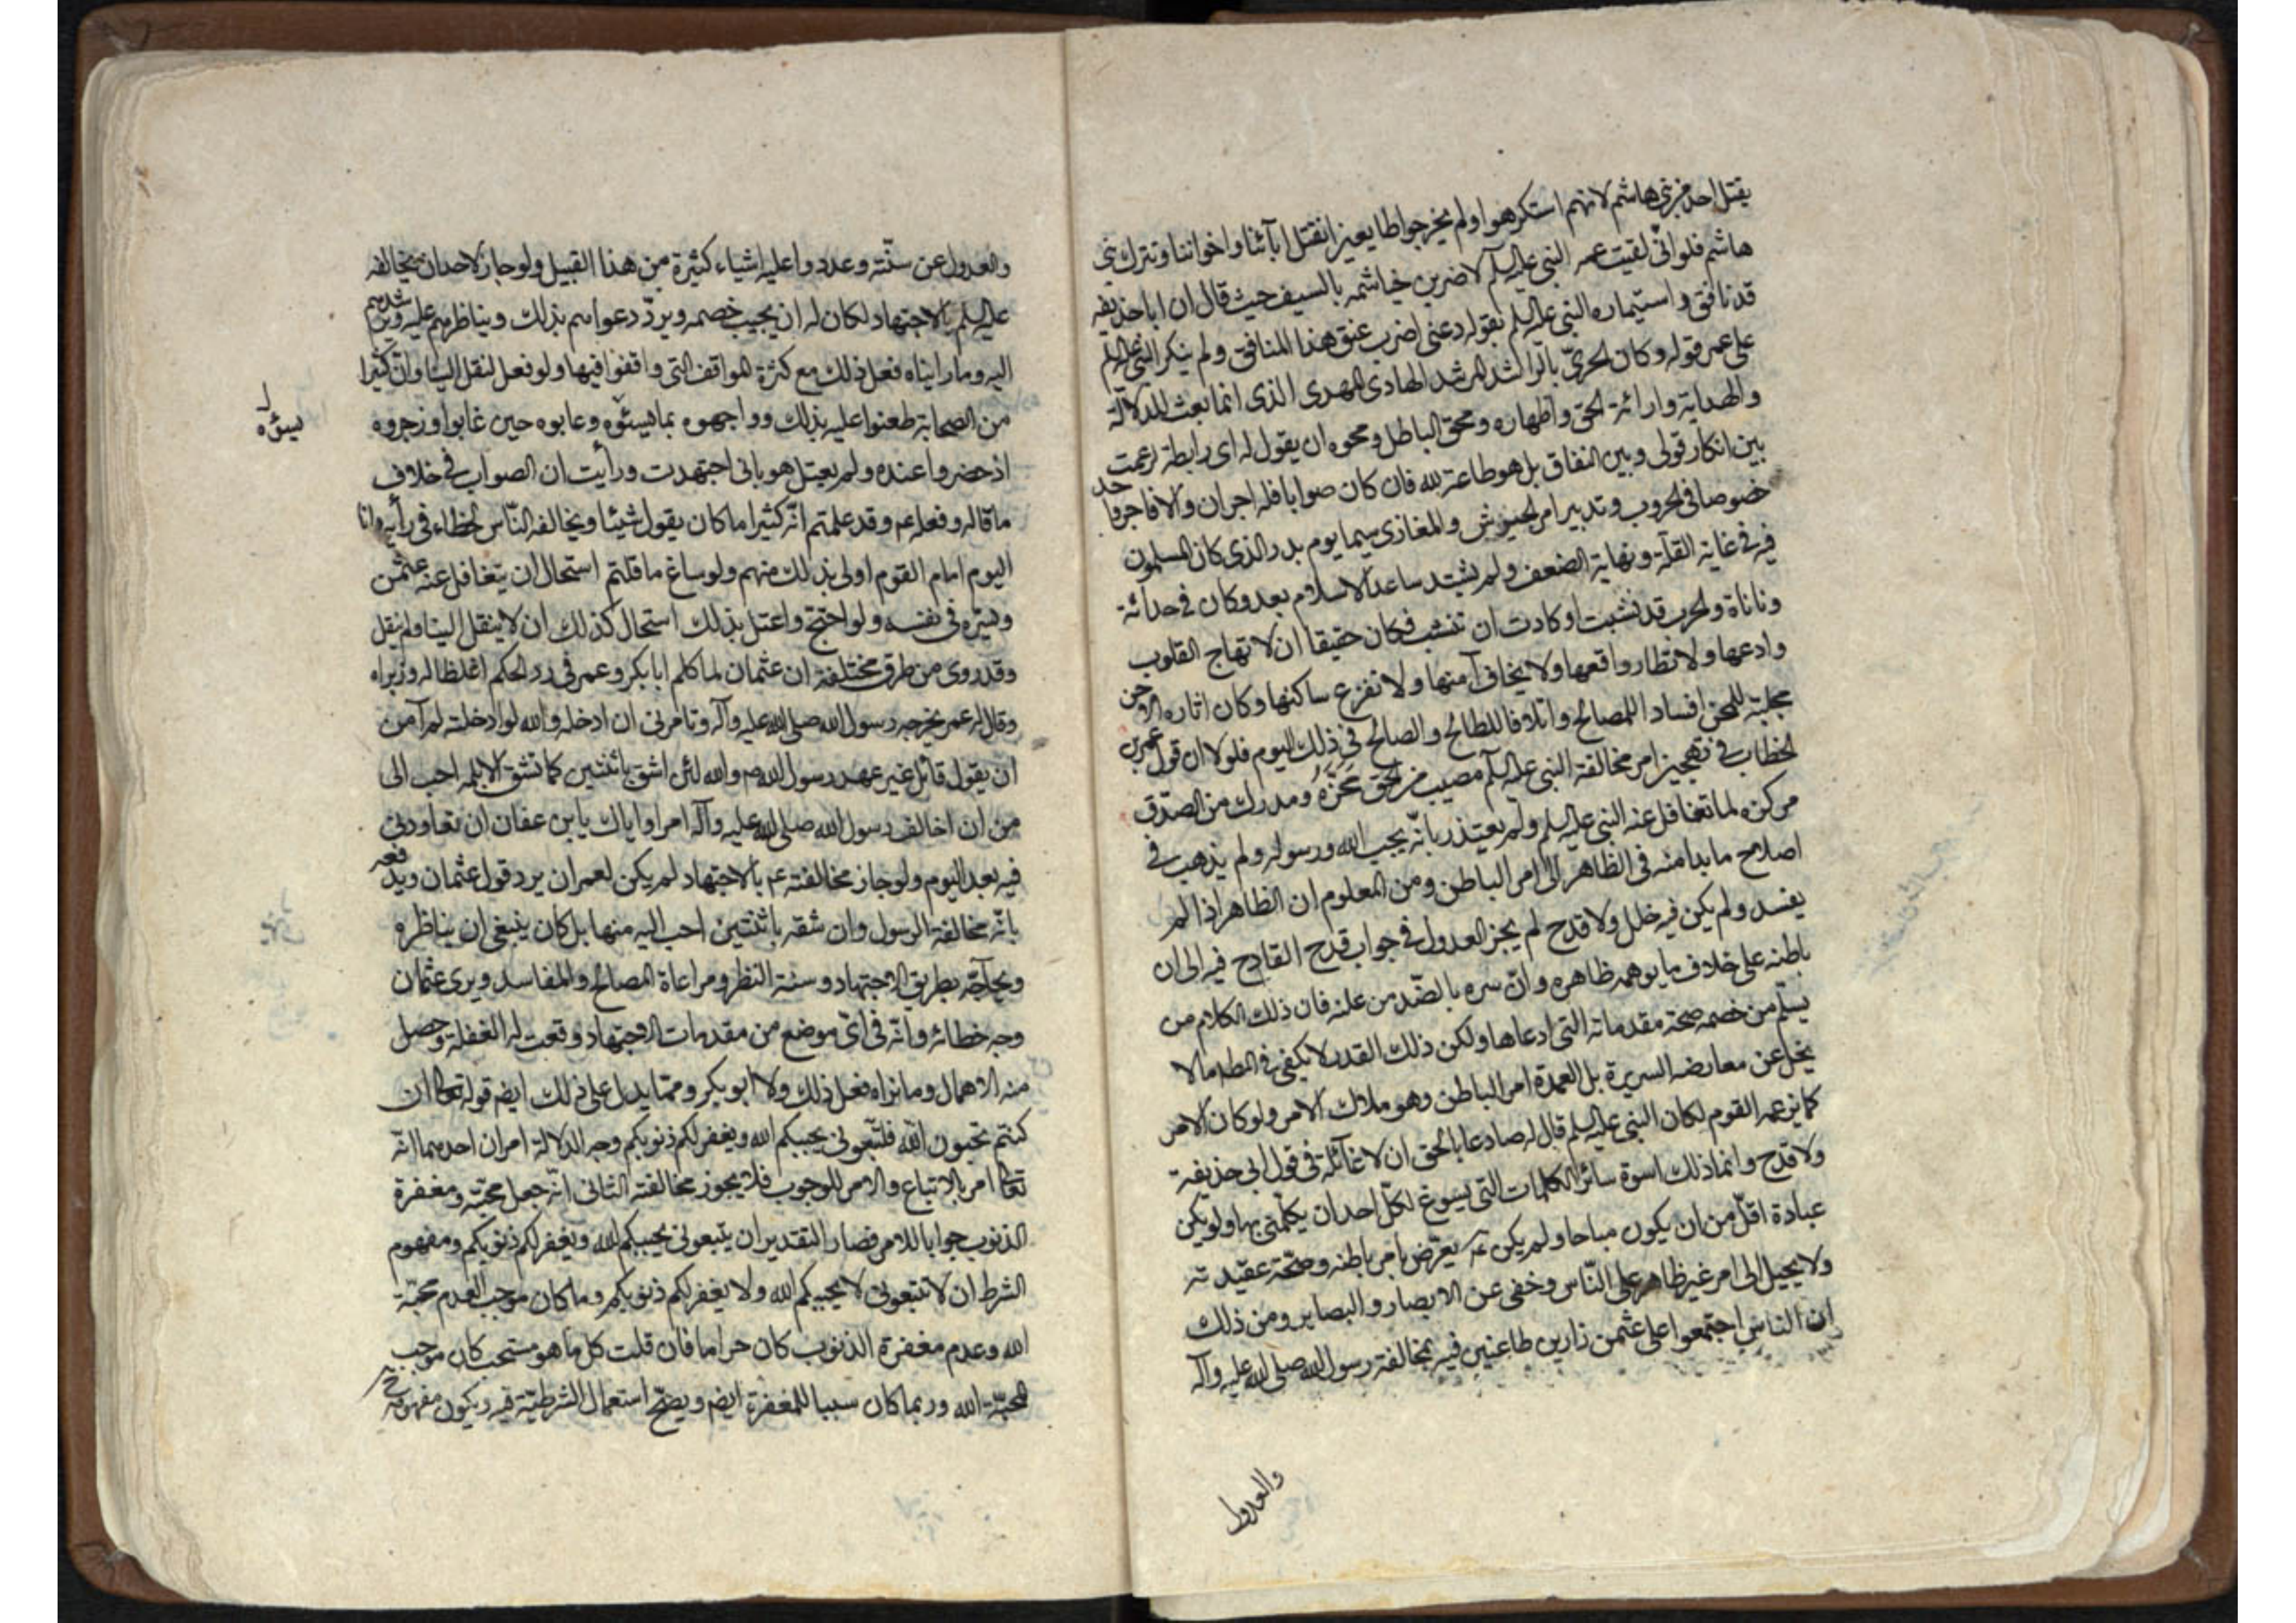 يقتل احد من بني هاشم لانهم استكرهوا ولم يخرجوا طايعين انقتل آبائنا واخواننا ونترك بني
هاشم فلو اني لقيت عم النبي عليه السلم لاضربن خياشمه بالسيف حيث قال ان ابا حذيفه
قد نافق واستيماره النبي عليه السلم بقوله دعني اضرب عنق هذا المنافق ولم ينكر النبي عليه السلم
على عمر قوله وكان الحريّ بالراشد المرشد الهادى المهدى الذى انما بعث للدلالة
والهداية وارائة الحق واظهاره ومحق الباطل ومحوه ان يقول له اى رابطة زعمت
بين انكار قولى وبين النفاق بل هو طاعة لله فان كان صوابا فله اجران والا فاجر واحد
خصوصا في الحروب وتدبير امر الجيوش والمغازى سيما يوم بدر الذى كان المسلمون
فيه في غاية القلة ونهاية الضعف ولم يشتد ساعد الاسلام بعد وكان في حداثة
ونأناة والحرب قد نشبت او كادت ان تنشب فكان حقيقا ان لا تهاج القلوب
وادعها ولا تطار واقعها ولا يخاف آمنها ولا تفزع ساكنها وكان اثاره الاحن
مجلبة للمحن افسادا للمصالح واتلافا للطالح والصالح في ذلك اليوم فلولا ان قول عمر بن
الخطاب في تهجين امر مخالفة النبي عليه السلم مصيب من الحق محزّه ومدرك من الصدق
مركزه لما تغافل عنه النبي عليه السلم ولم يعتذر بانّه يحب الله ورسوله ولم يذهب في
اصلاح ما بدا منه في الظاهر الى امر الباطن ومن المعلوم ان الظاهر اذا لم
يفسد ولم يكن فيه خلل ولا قدح لم يجز العدول في جواب قدح القادح فيه الى ان
باطنه على خلاف ما يوهمه ظاهره وانّ سره بالضّد من علنه فان ذلك الكلام من
يسلّم من خصمه صحة مقدماته التي ادعاها ولكن ذلك القدر لا يكفى في المط ما لا
يخل عن معارضه السريرة بل العمدة امر الباطن وهو ملاك الامر ولو كان الامر
كما يزعمه القوم لكان النبي عليه السلم قال له صادعا بالحق ان لا غائلة في قول ابي حذيفة
ولا قدح وانما ذلك اسوة سائر الكلمات التي يسوغ لكلّ احد ان يكلمني بها ولو يكن
عبادة اقلّ من ان يكون مباحا ولم يكن ع يعرّض بامر باطنه وصحّة عقيدته
ولا يحيل الى امر غير ظاهر على النّاس وخفى عن الابصار والبصاير ومن ذلك
ان الناس اجتمعوا على عثمن زارين طاعنين فيه بمخالفة رسول الله صلى الله عليه وآله
والعدول
والعدول عن سنّته وعددوا عليه اشياء كثيرة من هذا القبيل ولو جاز لاحد ان يخالفه
عليه السلم بالاجتهاد لكان له ان يجيب خصمه ويردّ دعواهم بذلك ويناظرهم عليه ويرشدهم
اليه وما رايناه فعل ذلك مع كثرة المواقف التي واقفوا فيها ولو فعل لنقل الينا وانّ كثيرا
من الصحابة طعنوا عليه بذلك وواجهوه بما يسئوه وعابوه حين غابوا وزجروه
يسؤه
اذ حضروا عنده ولم يعتل هو باني اجتهدت ورأيت ان الصواب في خلاف
ما قاله وفعله ع وقد علمتم انّه كثيرا ما كان يقول شيئا ويخالفه النّاس لخطاء في رأيه وانا
اليوم امام القوم اولى بذلك منهم ولو ساغ ما قلتم استحال ان يتغافل عنه عثمن
ويسّره في نفسه ولو احتج واعتل بذلك استحال كذلك ان لا ينقل الينا ولم ينقل
وقد روى من طرق مختلفة ان عثمان لما كلم ابا بكر وعمر في رد الحكم اغلظا له وزبراه
وقال له عمر يخرجه رسول الله صلى الله عليه وآله وتامرني ان ادخله والله لو ادخلته لم آمن
ان يقول قائل غير عهد رسول الله ص والله لئن اشق باثنتين كما تشق الابلمه احب الى
من ان اخالف رسول الله صلى الله عليه وآله امرا واياك يا بن عفان ان تعاودني
فيه بعد اليوم ولو جاز مخالفته ع بالاجتهاد لم يكن لعمر ان يرد قول عثمان ويدفعه
بانّه مخالفة الرسول وان شقه باثنتين احب اليه منها بل كان ينبغي ان يناظره
ويحاجّه بطريق الاجتهاد وسنة النظر ومراعاة المصالح والمفاسد ويرى عثمان
وجه خطائه وانّه في اىّ موضع من مقدمات الاجتهاد وقعت له الغفلة وحصل
منه الاهمال وما نراه فعل ذلك ولا ابو بكر ومما يدل على ذلك ايضم قوله تعالى ان
كنتم تحبون الله فاتّبعوني يحببكم الله ويغفر لكم ذنوبكم وجه الدلالة امران احدهما انّه
تعالى امر بالاتباع والامر للوجوب فلا يجوز مخالفته الثانى انّه جعل محبّته ومغفرة
الذنوب جوابا للامر فصار التقدير ان يتبعوني يحببكم الله ويغفر لكم ذنوبكم ومفهوم
الشرط ان لا تتبعوني لا يحببكم الله ولا يغفر لكم ذنوبكم وما كان موجب لعدم محبّة
الله وعدم مغفرة الذنوب كان حراما فان قلت كل ما هو مستحب كان موجب
لمحبّة الله وربما كان سببا للمغفرة ايضم ويصحّ استعمال الشرطيّة فيه ويكون مفهومه ح